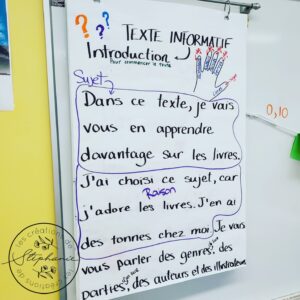 ? ? ?
TEXTE INFORMATIF
Introduction
Pour commencer le texte
Sujet
Dans ce texte, je vais
vous en apprendre
davantage sur les livres.
J'ai choisi ce sujet, car
Raison
j'adore les livres. J'en ai
des tonnes chez moi. Je vais
vous parler des genres, des
parties, des auteurs et des illustrateurs
0,10
les créations de
Stéphanie